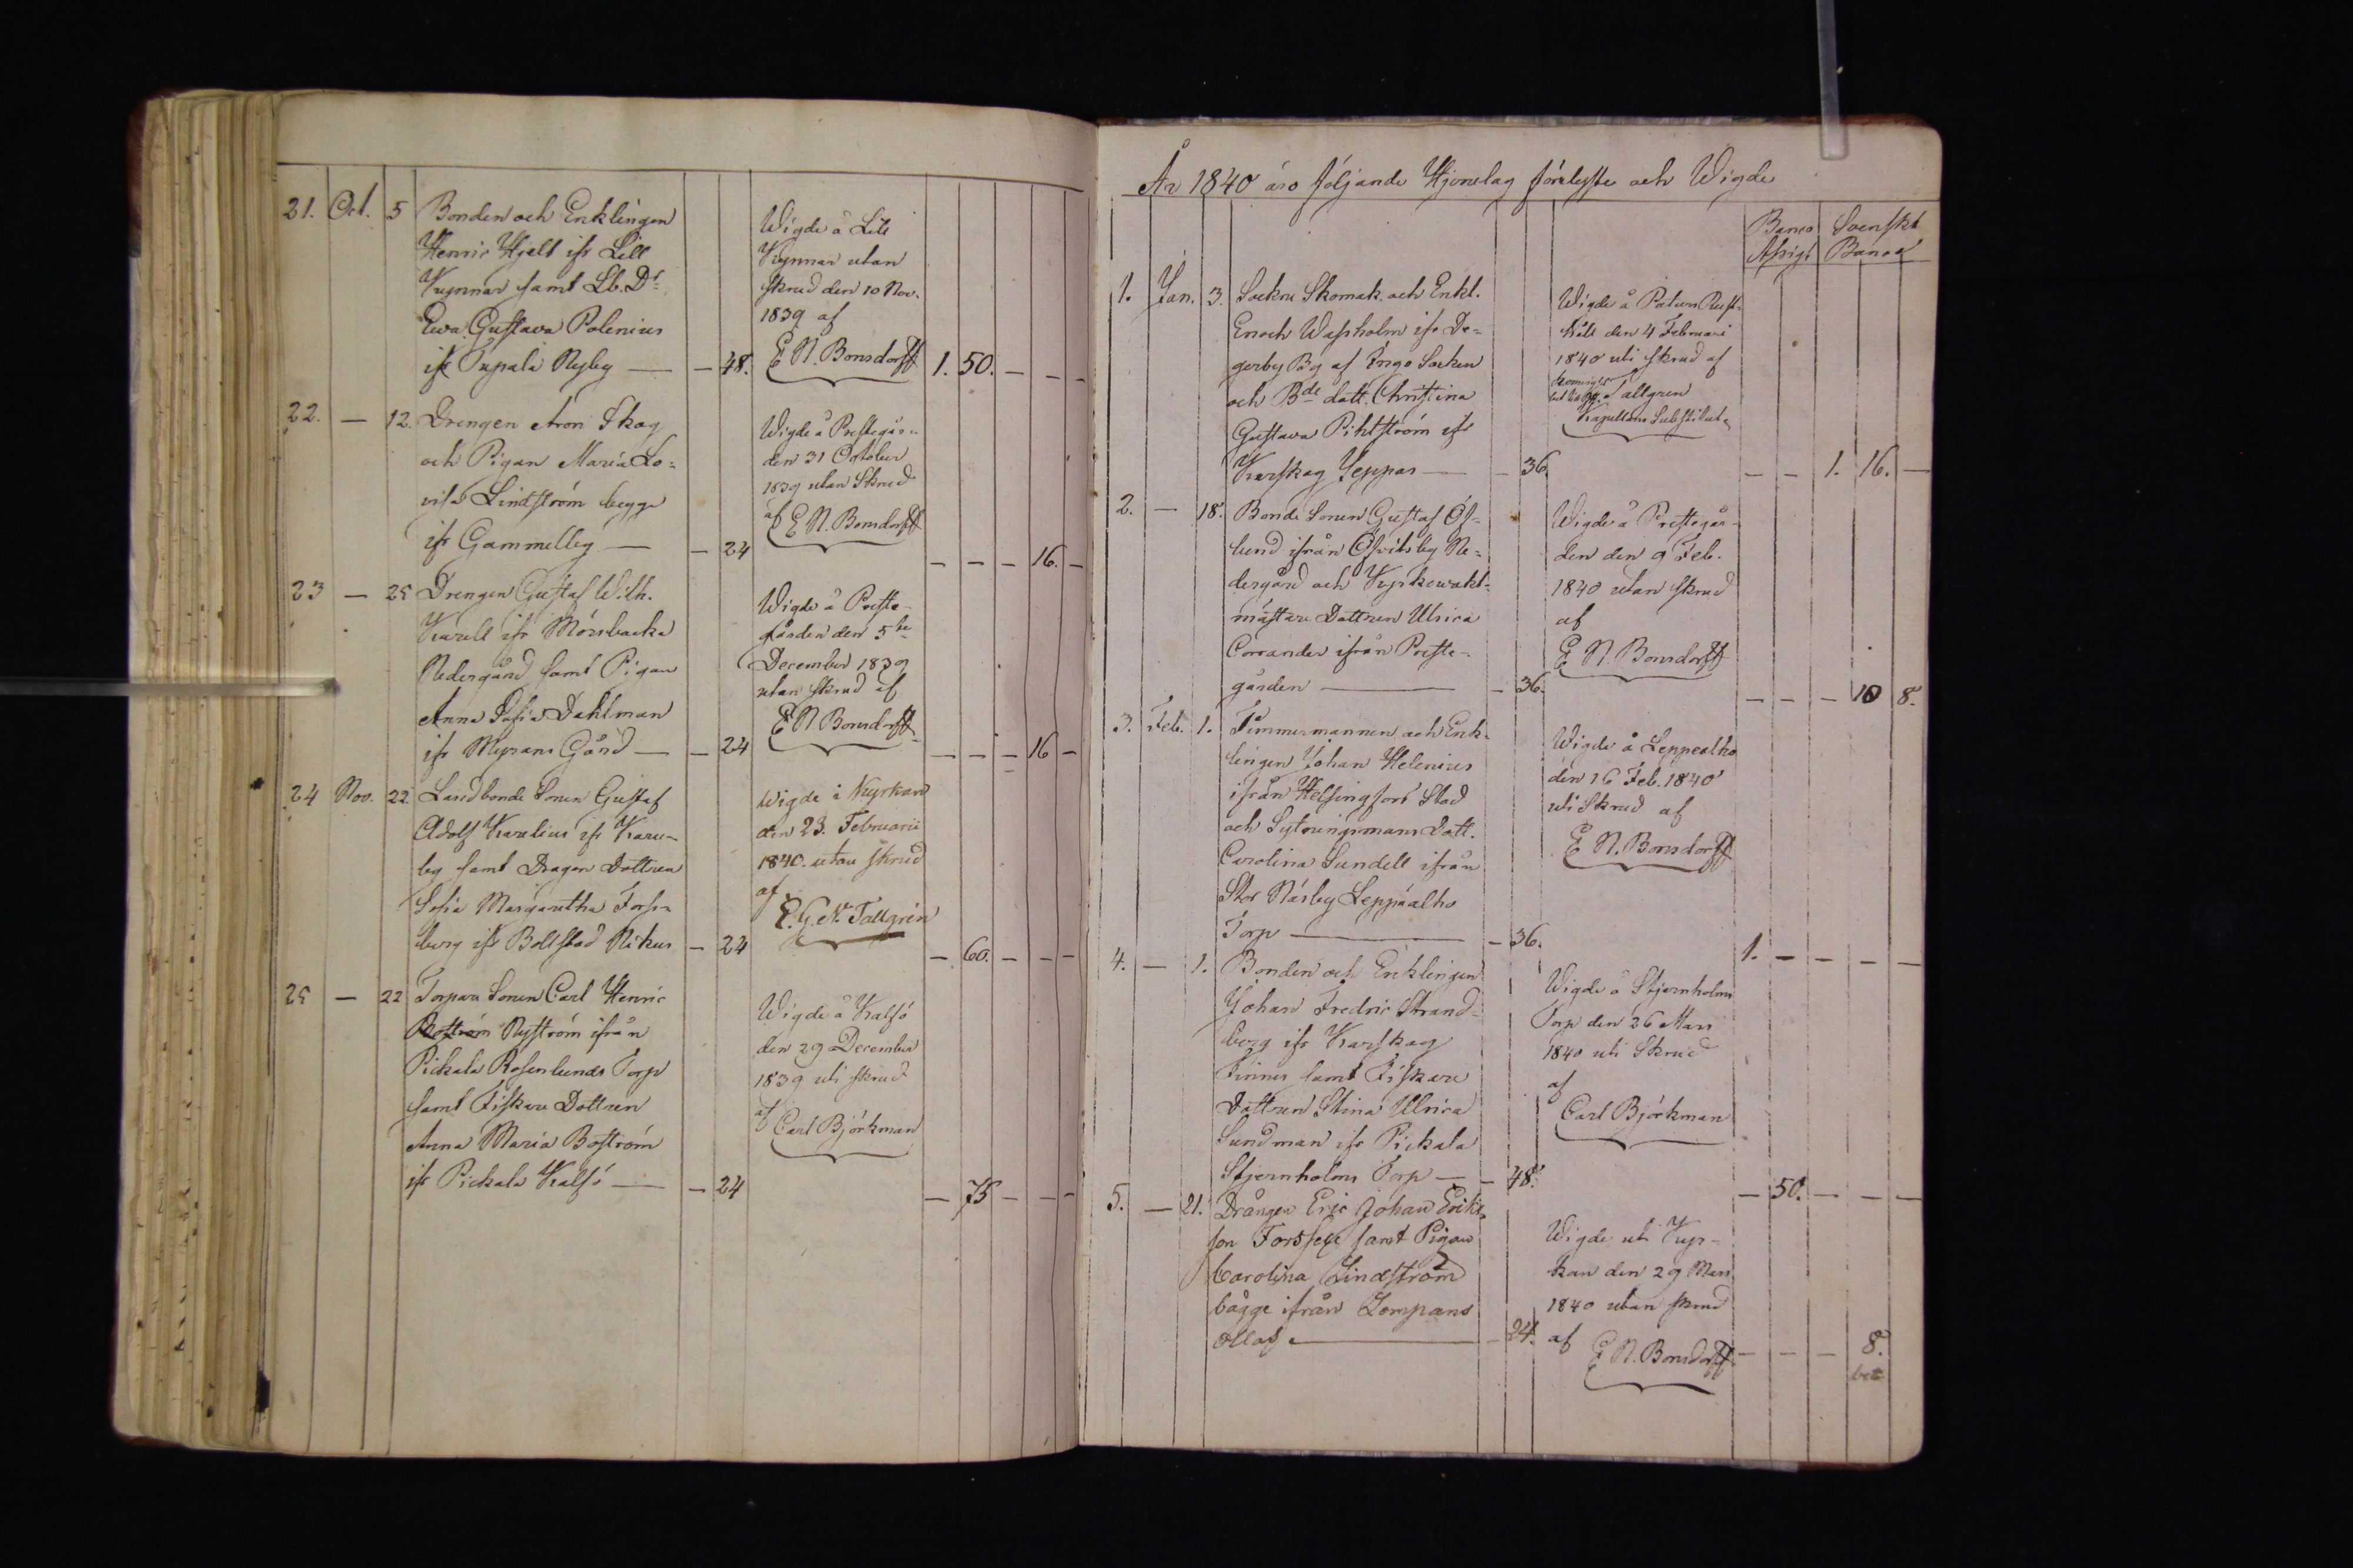 21. Oct. 5 Bonden och Enklingen
Henric Hjelt ifr Lill
Kynnar samt Lb. Dr.
Ewa Gustava Polenius
ifr Tupala Nyby — — 48.
Wigde å Lill
Kynnar utan
skrud den 10 Nov.
1839 af
E N. Bonsdorff 1. 50. — — —
22. — 12. Drengen Aron Skog
och Pigan Maria Lo=
visa Lindström begge
ifr Gammelby — — 24
Wigde å Prestegår-
den 31 October
1839 utan Skrud
af E N. Bonsdorff
— — — 16. —
23 — 25 Drengen Gustaf Wilh.
Karell ifr Mörsbacka
Nedergård samt Pigan
Anna Sofia Dahlman
ifr Myrans Gård — — 24
Wigde å Preste-
gården den 5te
December 1839
utan skrud af
E N. Bonsdorff
— — — 16 —
24 Nov. 22. Landbonde Sonen Gustaf
Adolf Karelius ifr Karu-
by samt Dragon Dottren
Sofia Margaretha Fors-
berg ifr Bollstad Nikus — 24
Wigde i Kyrkan
den 23. Februarii
1840. utan skrud
af
E. G. N. Tallgrén
— 60. — — —
25 — 22 Torpare Sonen Carl Henric
Boström Nyström ifrån
Pickala Rosenlunds Torp
samt Fiskare Dottren
Anna Maria Boström
ifr Pickala Kalfö — — 24
Wigde å Kalfö
den 29 December
1839 uti skrud
af Carl Björkman
— 75 — — —
År 1840 äro följande Hjonelag förelyste och Wigde
Banco Svenskt
Assigt Banco
1. Jan. 3. Sockne Skomak. och Enkl.
Enoch Wassholm ifr De-
gerby By af Ingo Socken
och Bde dott. Christina
Gustava Pihlström ifr
Karskog Jeppas — — 36.
Wigde å Patars Rust-
håll den 4 Februari
1840 uti skrud af
Tallgren
Kapellans Substitut.
— — 1. 16. —
2. — 18. Bonde Sonen Gustaf Öf-
lund ifrån Öfvitsby Ne-
dergård och Kyrkowakt-
mästare Dottren Ulrica
Corander ifrån Preste-
gården — — 36.
Wigde å Prestegår-
den den 9 Feb.
1840 utan skrud
af
E N. Bonsdorff
— — — 10 8.
3. Feb. 1. Timmermannen och Enk-
lingen Johan Helenius
ifrån Helsingfors Stad
och Sytningsmans Dott.
Carolina Sundell ifrån
Stor Näsby Leppäalho
Torp — — 36.
Wigde å Leppealho
den 16 Feb. 1840
uti Skrud af
E N. Bonsdorff
1. — — — —
4. — 1. Bonden och Enklingen
Johan Fredric Strand-
berg ifr Karskog
Finnes samt Fiskare
Dottren Stina Ulrica
Sundman ifr Pickala
Stjernholms Torp — — 48.
Wigde å Stjernholms
Torp den 26 Mars
1840 uti Skrud
af
Carl Björkman
— 50. — — —
5. — 21. Drängen Eric Johan Eriks-
son Forssell samt Pigan
Carolina Lindström
bägge ifrån Lompans
Ollas — — 24.
Wigde uti Kyr-
kan den 29 Mars
1840 utan skrud
af E N. Bonsdorff — — — 8.